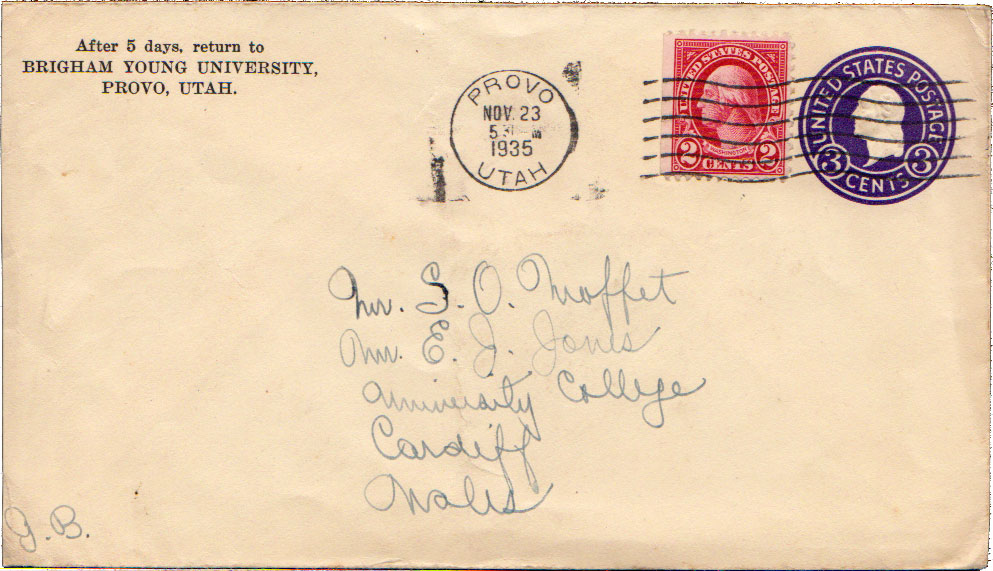 After 5 days, return to
BRIGHAM YOUNG UNIVERSITY,
PROVO, UTAH.
PROVO
NOV. 23
1935
UTAH
UNITED STATES POSTAGE
WASHINGTON
2 CENTS 2
UNITED STATES POSTAGE
3 CENTS 3
Mr. S. O. Moffet
Mr. E. J. Jones
University College
Cardiff
Wales
G.B.